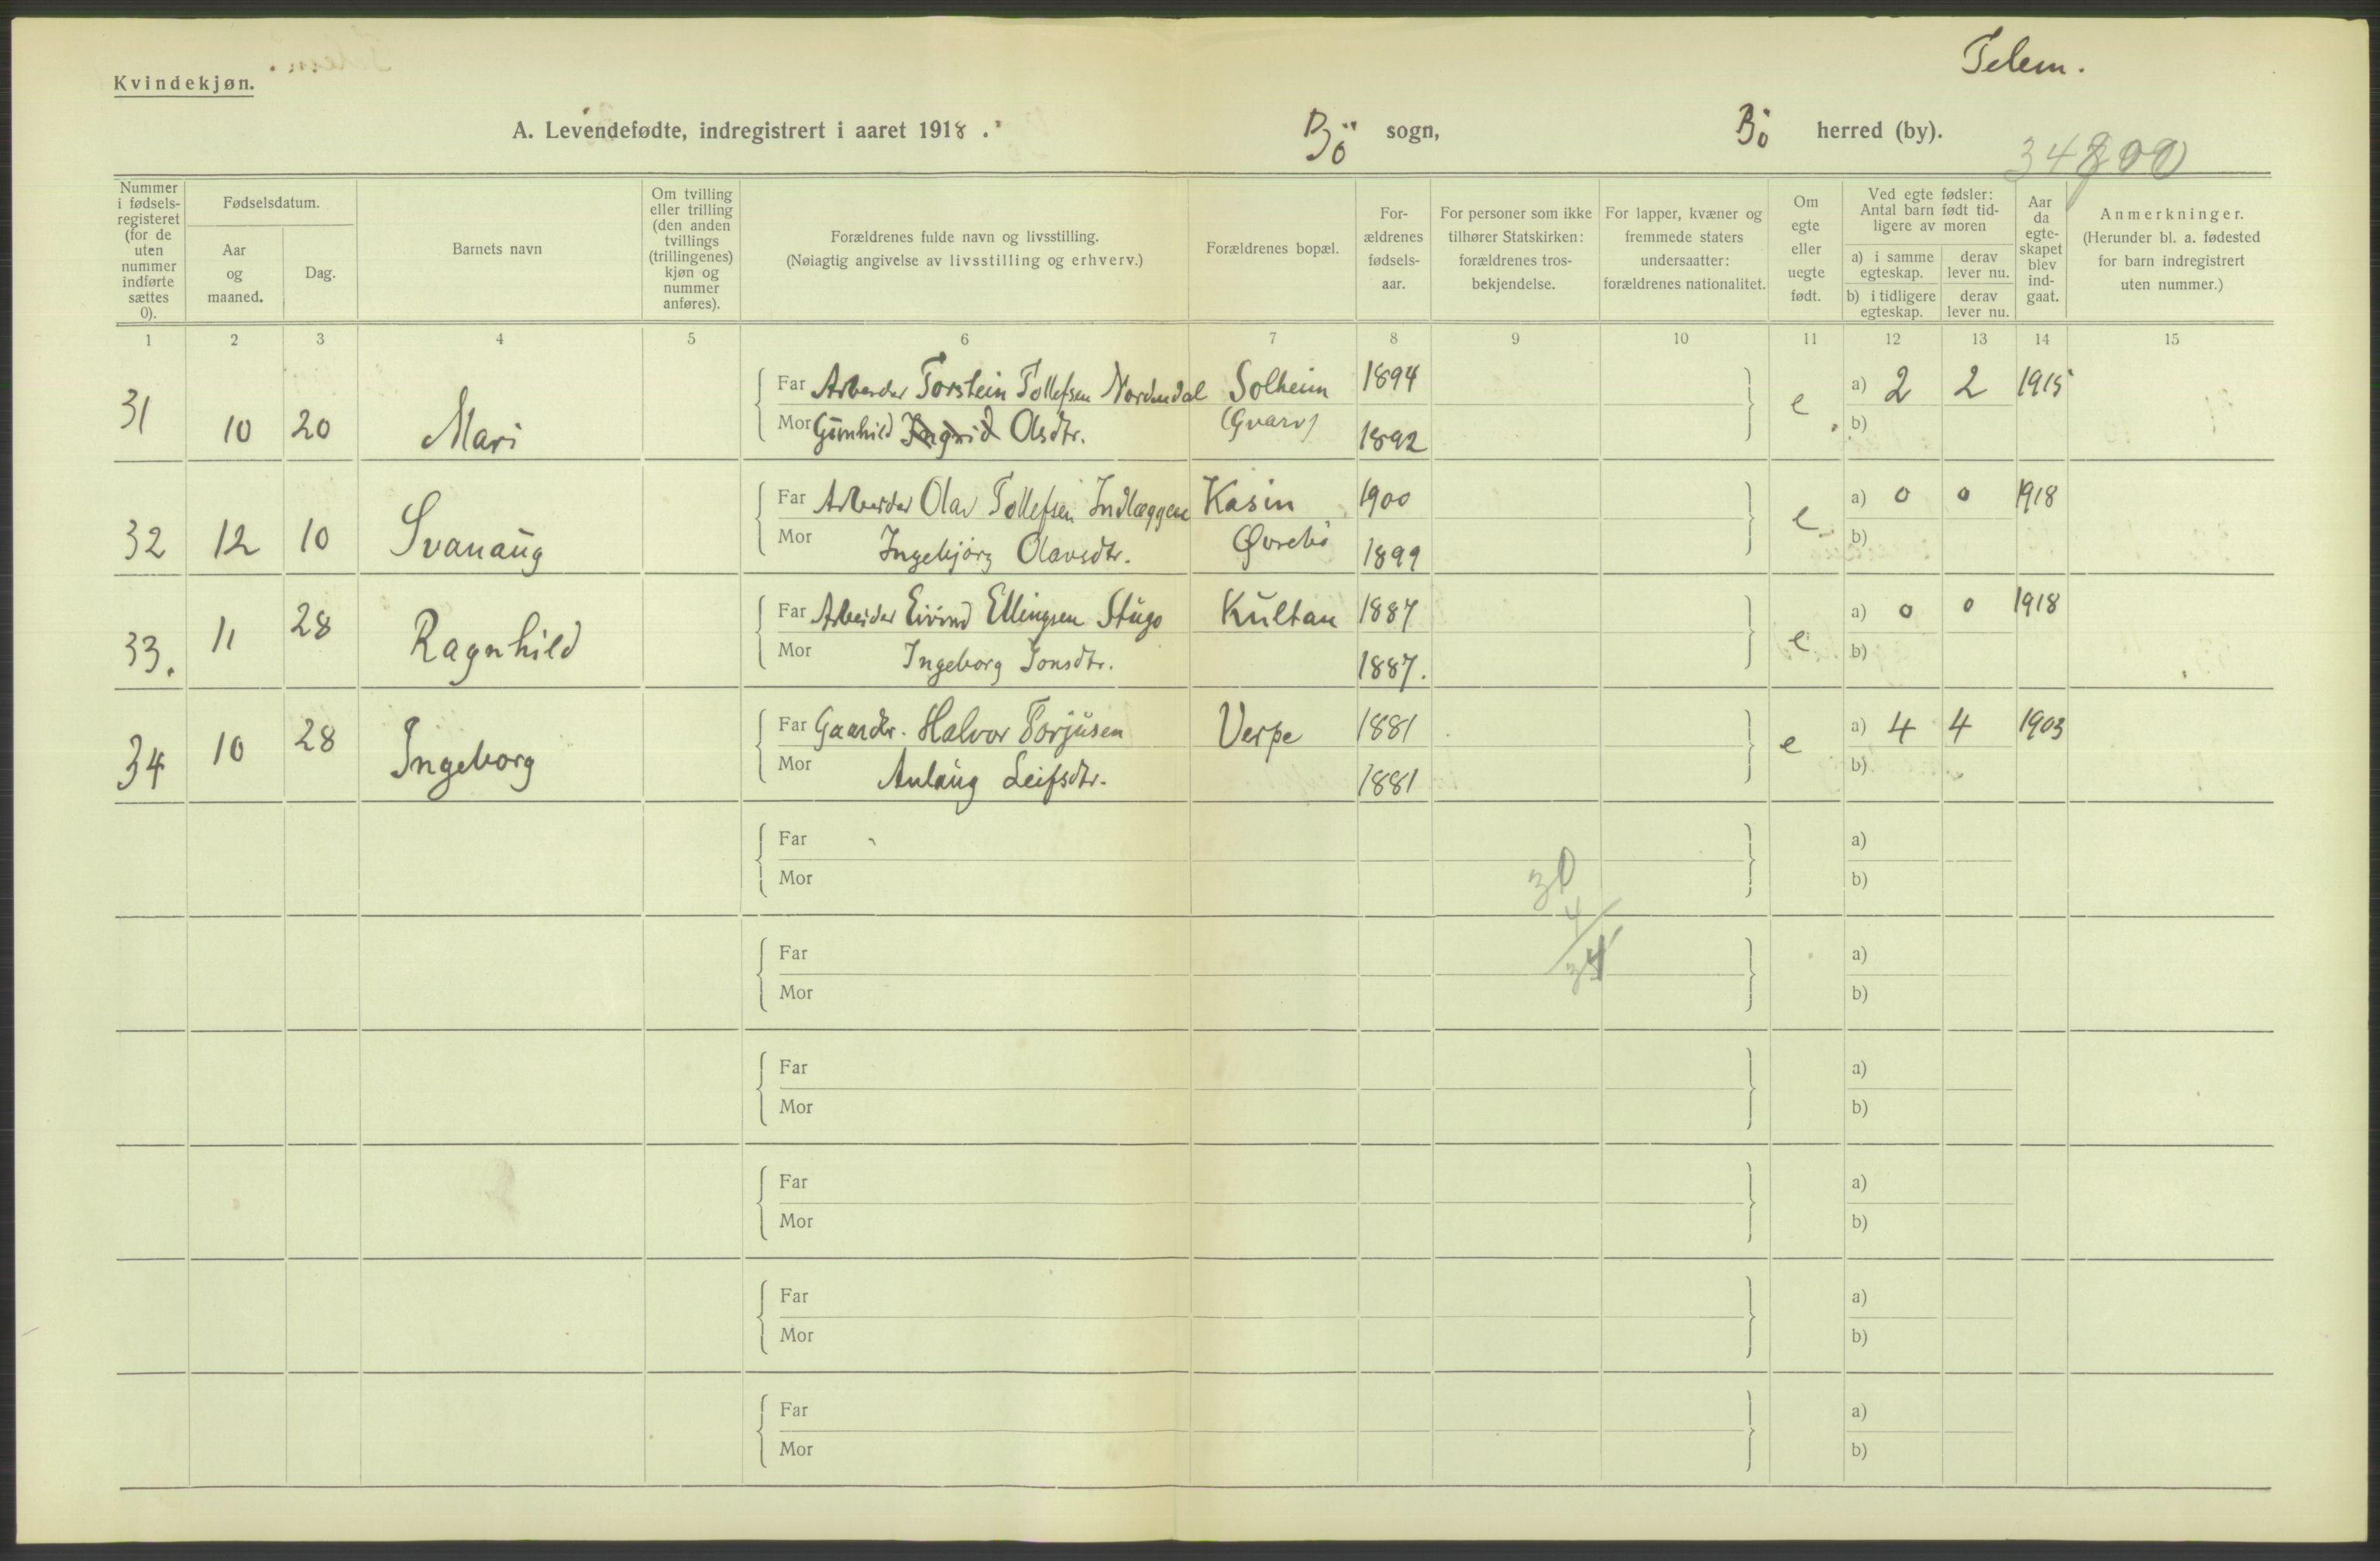 Telem.
Kvindekjøn.
A. Levendefødte, indregistrert i aaret 1918. Bö sogn, Bö herred (by).
34800
Nummer i fødselsregisteret (for de uten nummer indførte sættes 0).
Fødselsdatum.
Aar og maaned.
Dag.
Barnets navn
Om tvilling eller trilling (den anden tvillings (trillingenes) kjøn og nummer anføres).
Forældrenes fulde navn og livsstilling.
(Nøiagtig angivelse av livsstilling og erhverv.)
Forældrenes bopæl.
Forældrenes fødselsaar.
For personer som ikke tilhører Statskirken: forældrenes trosbekjendelse.
For lapper, kvæner og fremmede staters undersaatter: forældrenes nationalitet.
Om egte eller uegte født.
Ved egte fødsler: Antal barn født tidligere av moren
a) i samme egteskap.
derav lever nu.
b) i tidligere egteskap.
derav lever nu.
Aar da egteskapet blev indgaat.
Anmerkninger.
(Herunder bl. a. fødested for barn indregistrert uten nummer.)
1 2 3 4 5 6 7 8 9 10 11 12 13 14 15
31 10 20 Mari
Far Arbeider Torstein Tollefsen Nordendal Solheim 1894 e a) 2 2 1915
Mor Gunhild Ingrid Olsdtr. (Gvarv) 1892 b)
32 12 10 Svanaug
Far Arbeider Olav Tollefsen Indlæggen Kasin 1900 e a) 0 0 1918
Mor Ingebjörg Olavsdtr. Øvrebö 1899 b)
33. 11 28 Ragnhild
Far Arbeider Eivind Ellingsen Stugo Kultan 1887 e a) 0 0 1918
Mor Ingeborg Jonsdtr. 1887. b)
34 10 28 Ingeborg
Far Gaardbr. Halvor Torjusen Verpe 1881 e a) 4 4 1903
Mor Anlaug Leifsdtr. 1881 b)
Far a)
Mor b)
30
4
34
Far a)
Mor b)
Far a)
Mor b)
Far a)
Mor b)
Far a)
Mor b)
Far a)
Mor b)